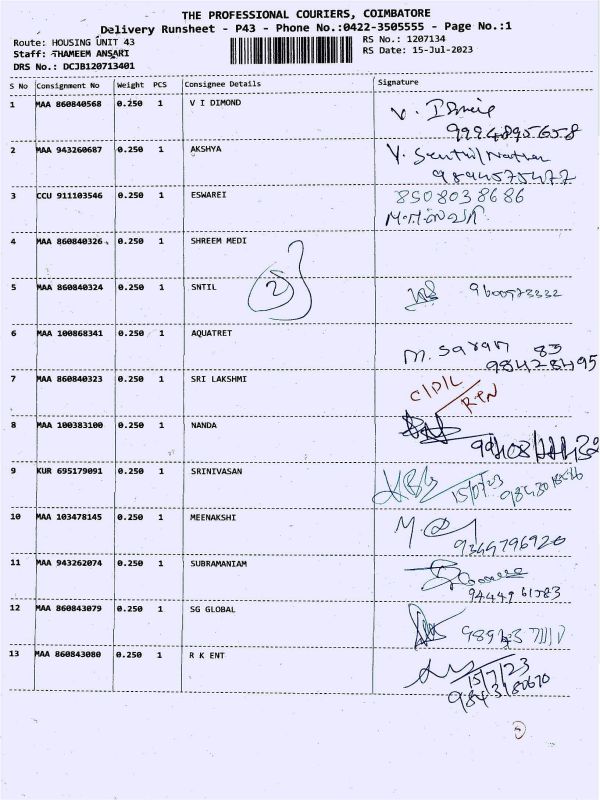 THE PROFESSIONAL COURIERS, COIMBATORE
Delivery Runsheet - P43 - Phone No.:0422-3505555 - Page No.:1
Route: HOUSING UNIT 43
RS No.: 1207134
Staff: THAMEEM ANSARI
RS Date: 15-Jul-2023
DRS No.: DCJB120713401
S No Consignment No Weight PCS Consignee Details Signature
1 MAA 860840568 0.250 1 V I DIMOND
9994895658
2 MAA 943260687 0.250 1 AKSHYA V. Senthil Nathan
9894575472
3 CCU 911103546 0.250 1 ESWAREI 8508038686
4 MAA 860840326 0.250 1 SHREEM MEDI
5 MAA 860840324 0.250 1 SNTIL
6 MAA 100868341 0.250 1 AQUATRET M. Saran 83
98428495
7 MAA 860840323 0.250 1 SRI LAKSHMI
8 MAA 100383100 0.250 1 NANDA
9 KUR 695179091 0.250 1 SRINIVASAN 15/07/23
10 MAA 103478145 0.250 1 MEENAKSHI
9349796920
11 MAA 943262074 0.250 1 SUBRAMANIAM
9444961583
12 MAA 860843079 0.250 1 SG GLOBAL
13 MAA 860843080 0.250 1 R K ENT 15/7/23
9843180670